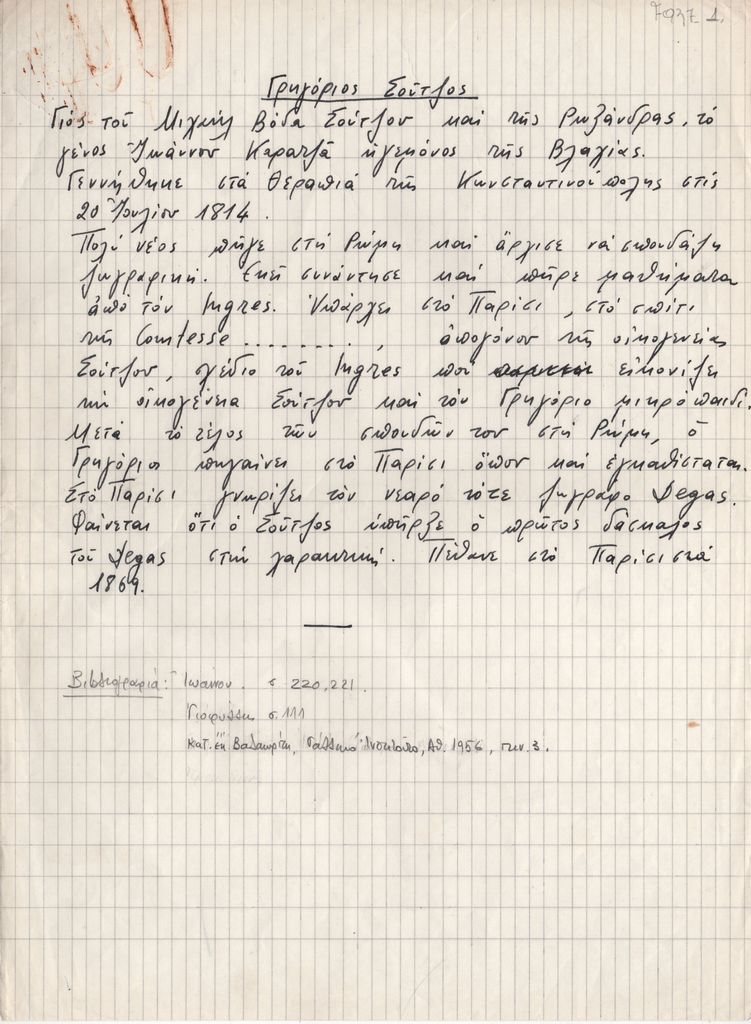 7937 1.
Γρηγόριος Σοῦτζος
Γιός τοῦ Μιχαήλ Βόδα Σούτζου καί τῆς Ρωξάνδρας, τό
γένος Ἰωάννου Καρατζᾶ ἡγεμόνος τῆς Βλαχίας.
Γεννήθηκε στά Θεραπιά τῆς Κωνσταντινούπολης στίς
20 Ἰουλίου 1814.
Πολύ νέος πῆγε στή Ρώμη καί ἄρχισε νά σπουδάζη
ζωγραφική. Ἐκεῖ συνάντησε καί πῆρε μαθήματα
ἀπό τόν Ingres. Ὑπάρχει στό Παρίσι, στό σπίτι
τῆς Comtesse ........., ἀπογόνου τῆς οἰκογενείας
Σούτζου, σχέδιο τοῦ Ingres πού εἰκονίζει
τήν οἰκογένεια Σούτζου καί τόν Γρηγόριο μικρό παιδί.
Μετά τό τέλος τῶν σπουδῶν του στή Ρώμη, ὁ
Γρηγόριος πηγαίνει στό Παρίσι ὅπου καί ἐγκαθίσταται.
Στό Παρίσι γνωρίζει τόν νεαρό τότε ζωγράφο Degas.
Φαίνεται ὅτι ὁ Σοῦτζος ὑπῆρξε ὁ πρῶτος δάσκαλος
τοῦ Degas στήν χαρακτική. Πέθανε στό Παρίσι στά
1869.
Βιβλιογραφία: Ἰωάννου. σ 220, 221.
σ. 111
Κατ. ἐκ. Βαλαωρίτη, Γαλλικό Ἰνστιτοῦτο, Ἀθ. 1956, πιν. 3.